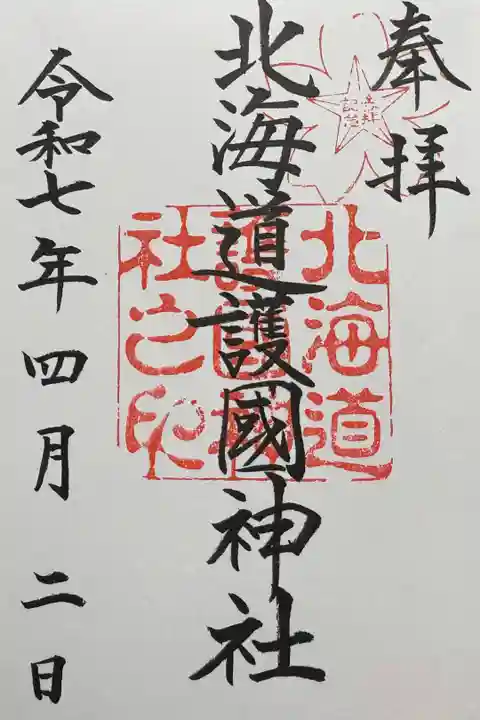 奉拝
参拝
記念
北海道護國神社
北海道
護國神
社之印
令和七年四月二日